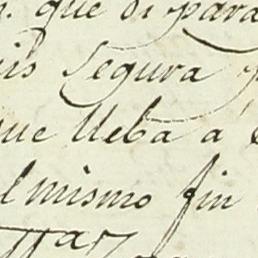 que di para
Segura
que lleba a
el mismo fin